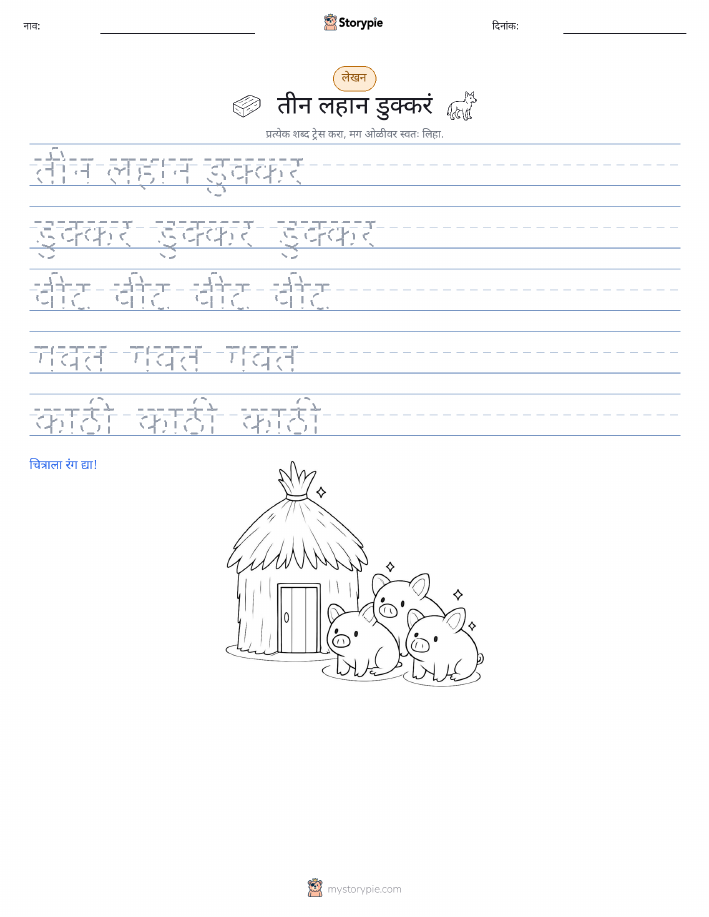 नाव:
Storypie
दिनांक:
लेखन
तीन लहान डुक्करं
प्रत्येक शब्द ट्रेस करा, मग ओळीवर स्वतः लिहा.
तीन लहान डुक्कर
डुक्कर डुक्कर डुक्कर
वीट वीट वीट वीट
गवत गवत गवत
काठी काठी काठी
चित्राला रंग द्या!
mystorypie.com